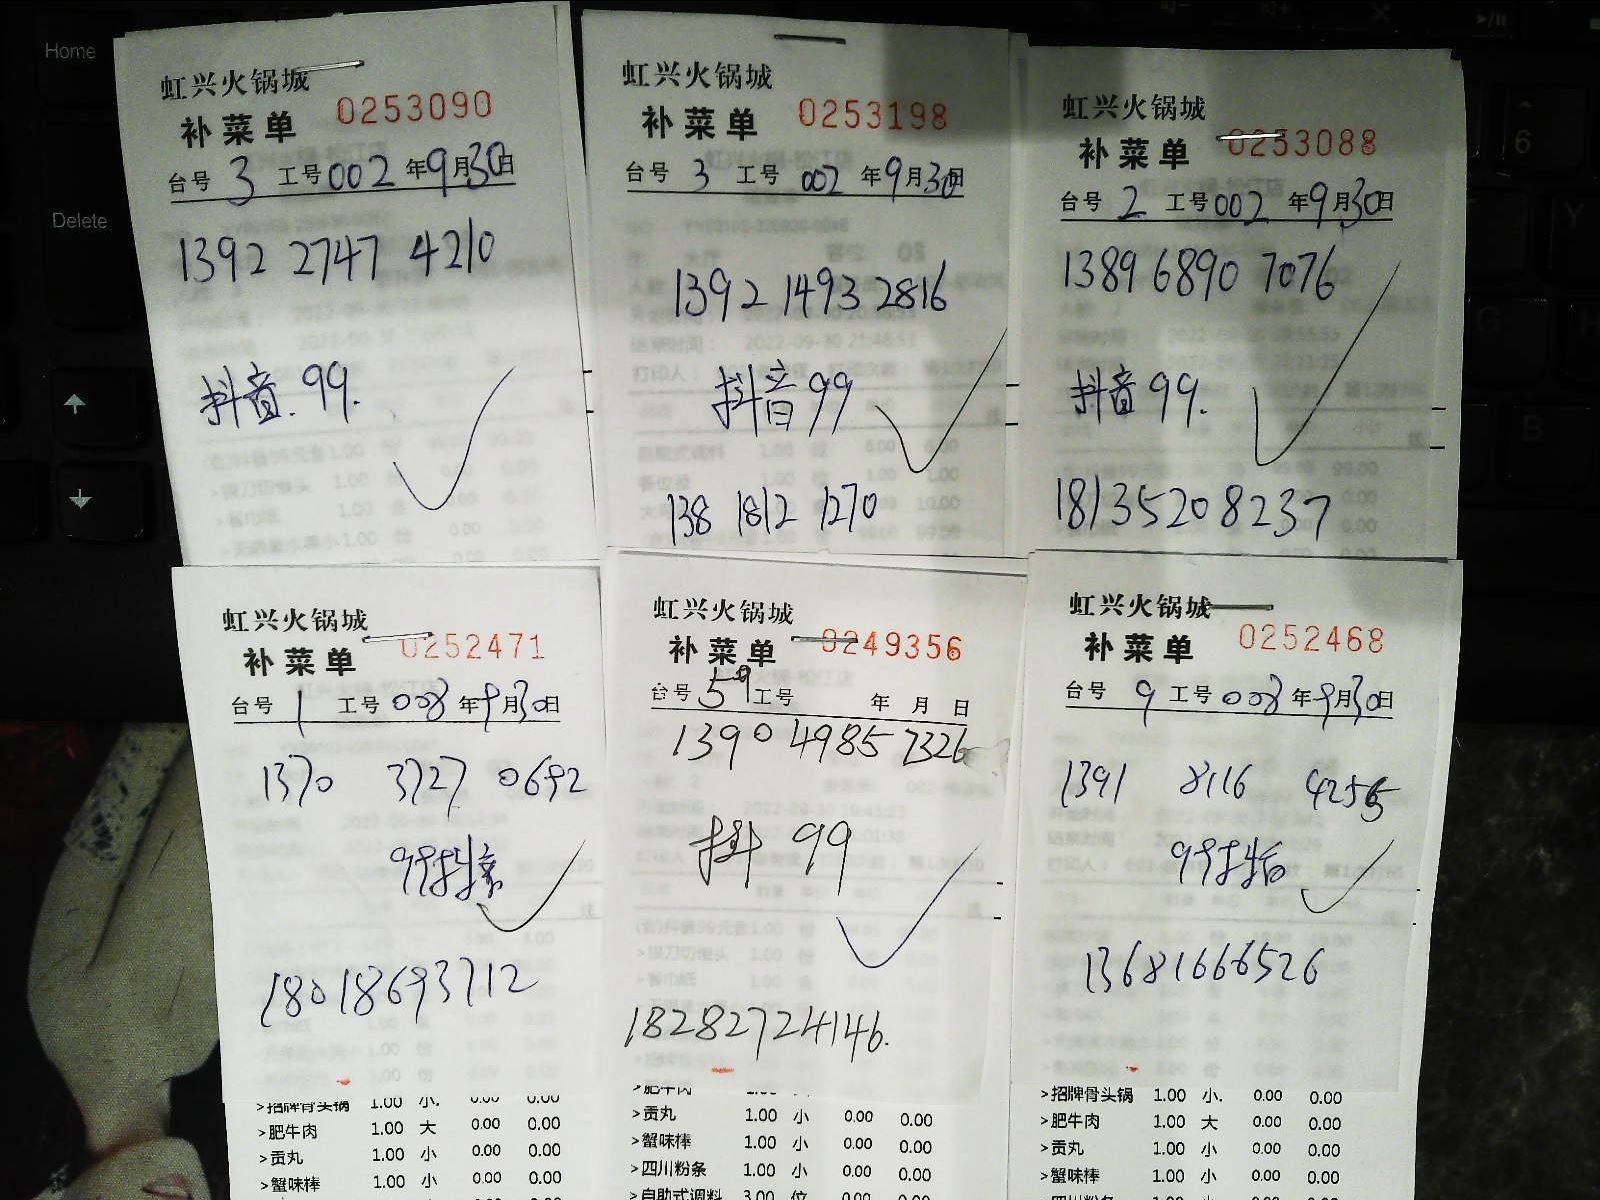 Home
Delete
虹兴火锅城
补菜单 0253090
台号 3 工号 002 年 9 月 30 日
1392 2747 4210
抖音. 99.
虹兴火锅城
补菜单 0253198
台号 3 工号 002 年 9 月 30 日
1392 1493 2816
抖音 99
138 1812 1270
虹兴火锅城
补菜单 0253088
台号 2 工号 002 年 9 月 30 日
1389 6890 7076
抖音 99.
18135208237
虹兴火锅城
补菜单 0252471
台号 1 工号 008 年 9 月 30 日
1370 3727 0692
99抖音
18018693712
>招牌骨头锅 1.00 小. 0.00 0.00
>肥牛肉 1.00 大 0.00 0.00
>贡丸 1.00 小 0.00 0.00
>蟹味棒 1.00 小 0.00 0.00
虹兴火锅城
补菜单 0249356
台号 59 工号 年 月 日
1390 4985 7326
抖 99
18282724146.
>肥牛肉
>贡丸 1.00 小 0.00 0.00
>蟹味棒 1.00 小 0.00 0.00
>四川粉条 1.00 小 0.00 0.00
>自助式调料 3.00 位 0.00 0.00
虹兴火锅城
补菜单 0252468
台号 9 工号 008 年 9 月 30 日
1391 8116 4255
99抖音
13681666526
>招牌骨头锅 1.00 小. 0.00 0.00
>肥牛肉 1.00 大 0.00 0.00
>贡丸 1.00 小 0.00 0.00
>蟹味棒 1.00 小 0.00 0.00
>四川粉条 1.00 小 0.00 0.00